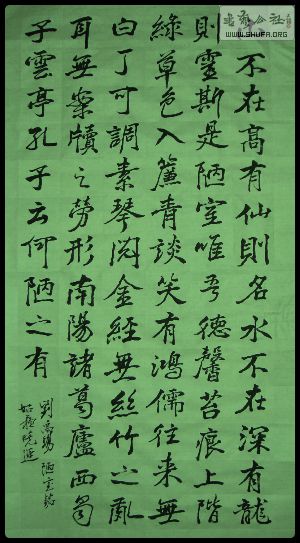 不在高有仙則名水不在深有龍
則靈斯是陋室唯吾德馨苔痕上階
綠草色入簾青談笑有鴻儒往來無
白丁可調素琴閱金經無絲竹之亂
耳無案牘之勞形南陽諸葛廬西蜀
子雲亭孔子云何陋之有
劉禹錫陋室銘
公社
WWW.SHUFA.ORG